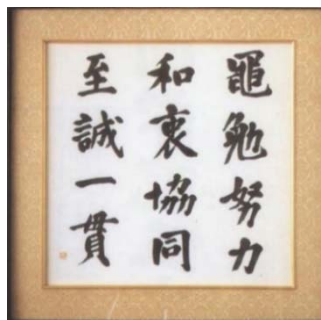 黽勉努力
和衷協同
至誠一貫